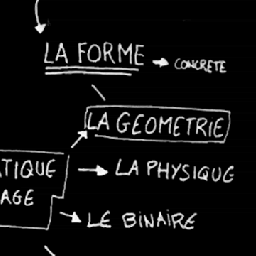 LA FORME → CONCRETE
LA GEOMETRIE
TIQUE → LA PHYSIQUE
AGE → LE BINAIRE